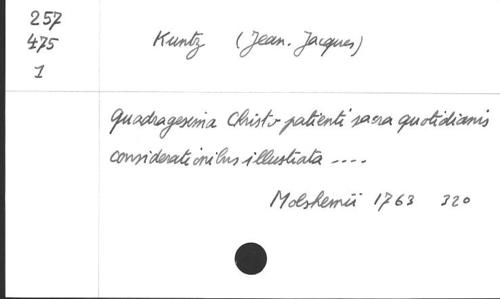 257
475
1
Kuntz (Jean-Jacques)
Quadragesima Christo patienti sacra quotidianis
considerationibus illustrata ....
Molshemii 1763 320